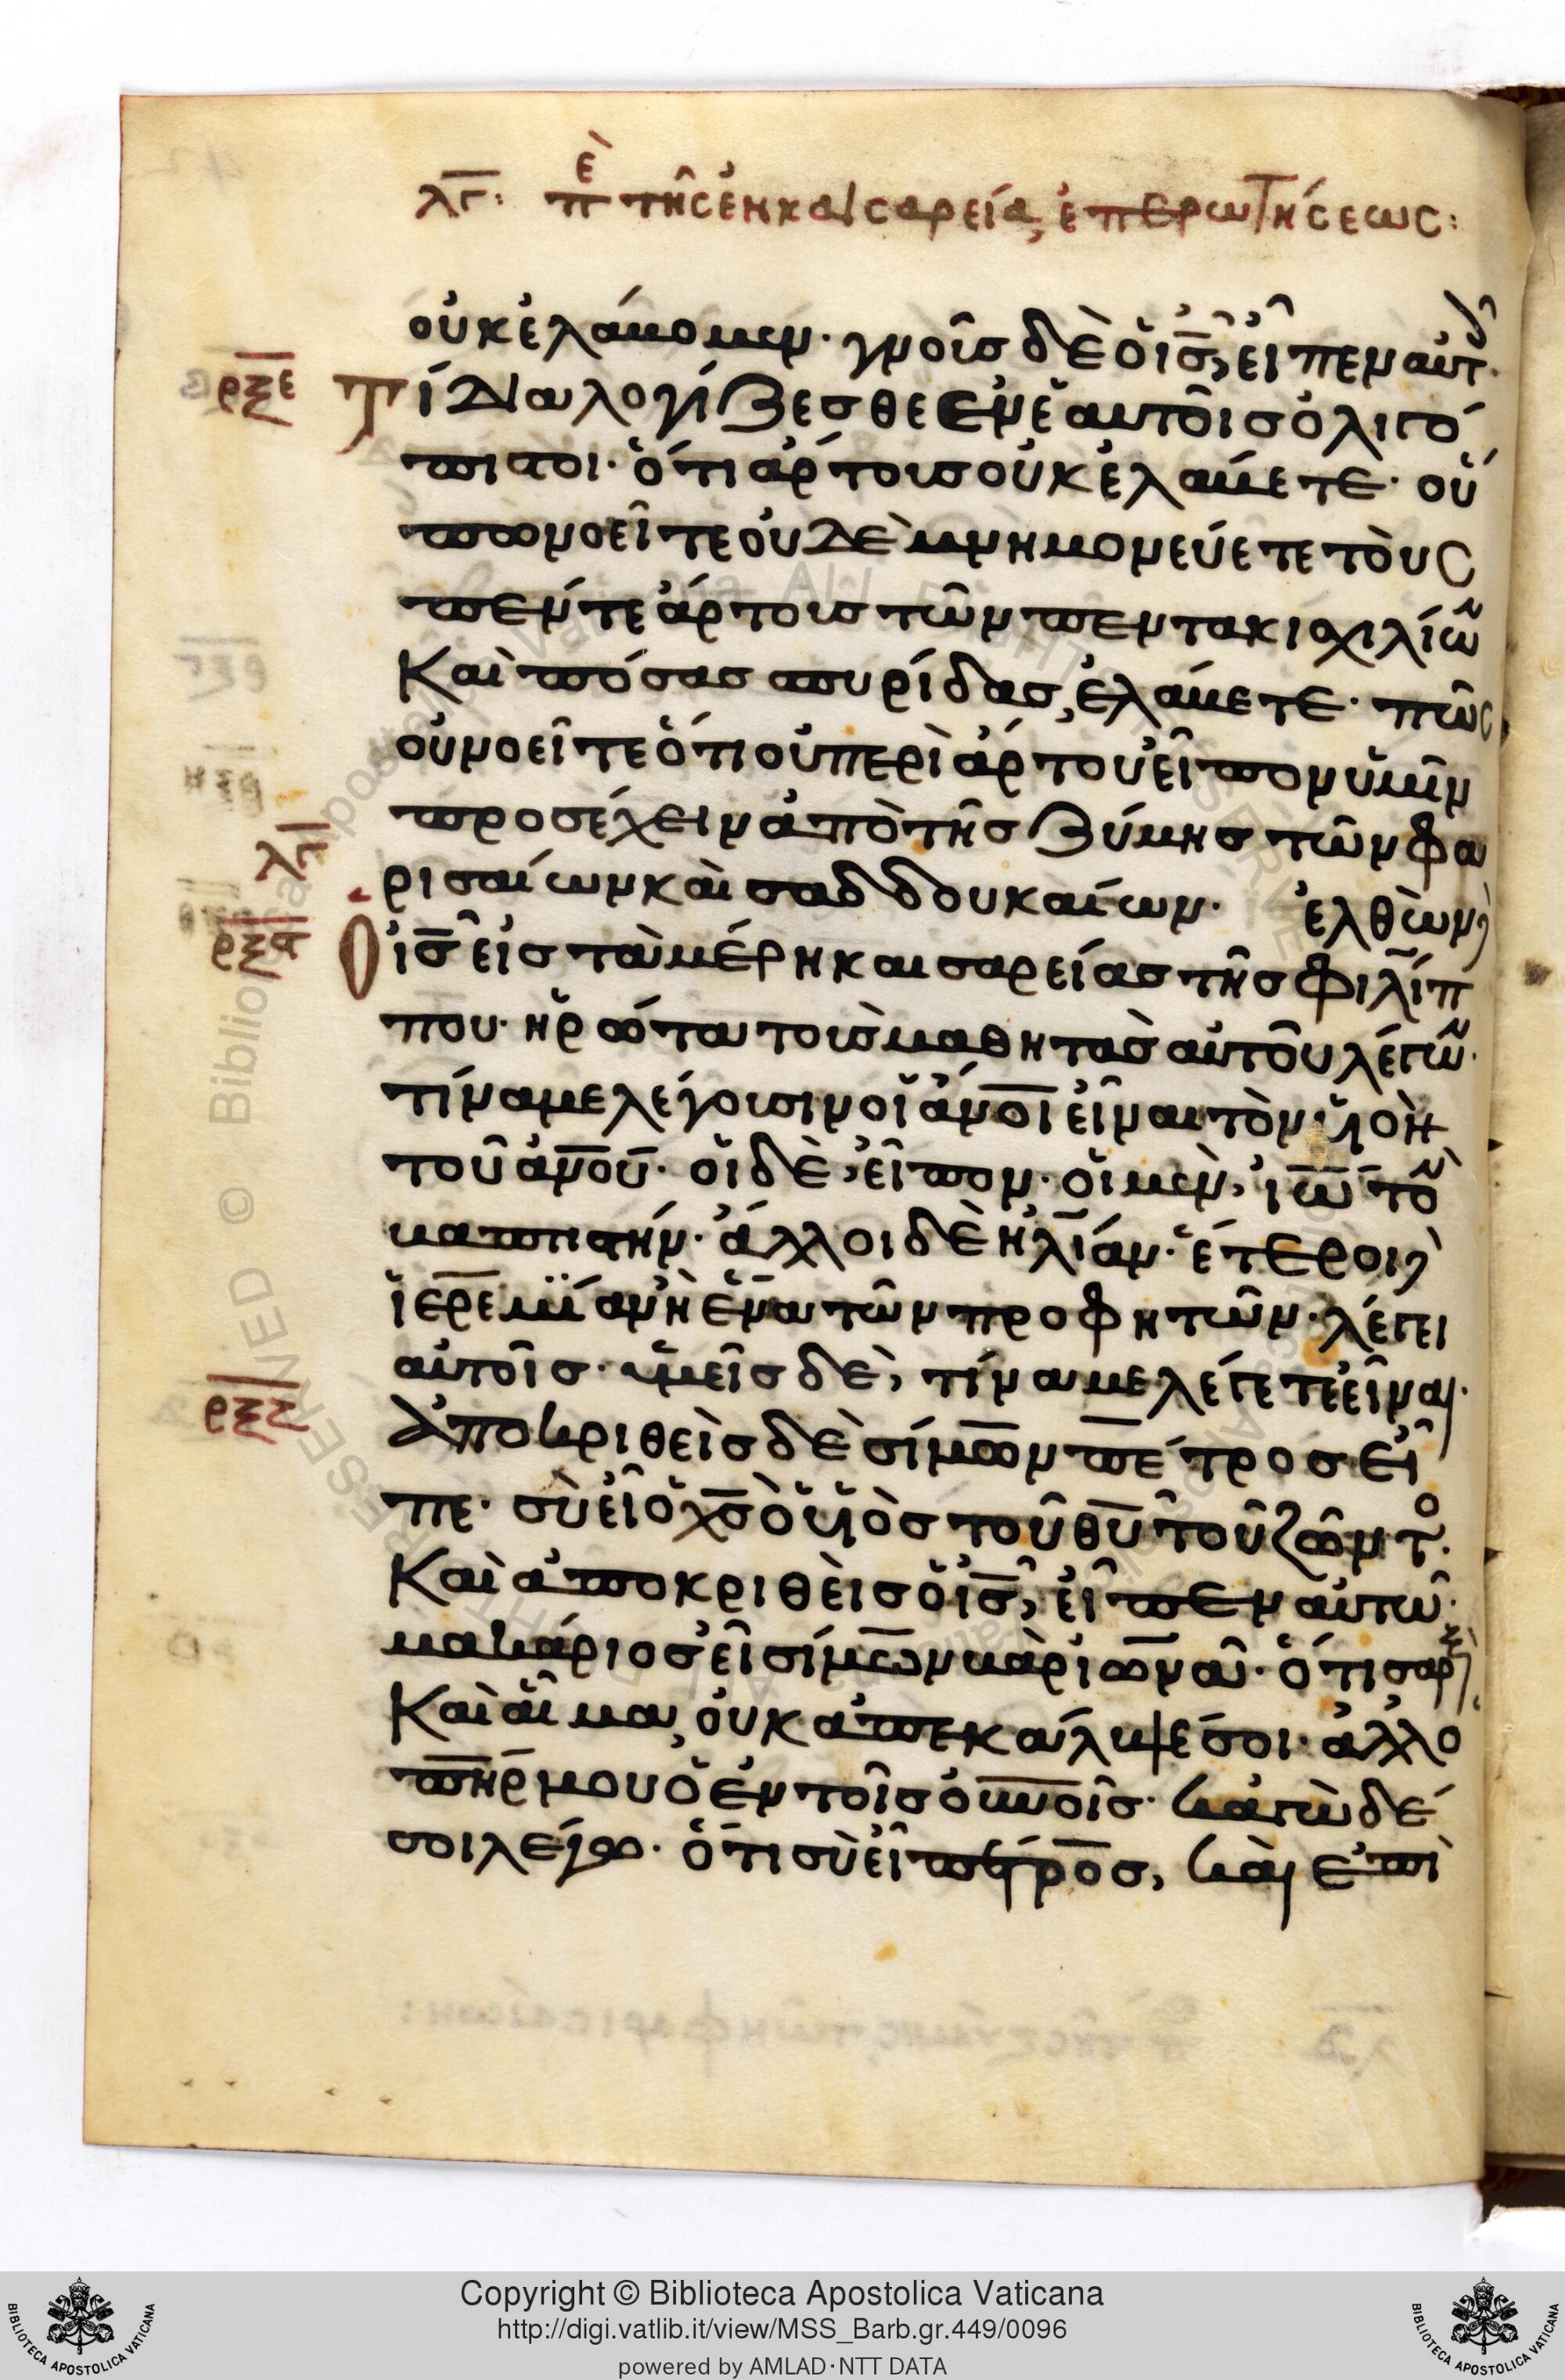 λγ: πε τῆς ἐν καισαρεία, ἐπερωτήσεως:
οὐκ ἐλάβομεν· γνοῖσ δὲ ὁ ι̅σ̅, εἶπεν αὐτ·
ρξε τί διαλογίζεσθε ἐν ἑαυτοῖσ ὀλιγό
πιστοι· ὅτι ἄρτουσ οὐκ ἐλάβετε· οὔ
πω νοεῖτε οὐδὲ μνημονεύετε τοὺσ
πέντε ἄρτουσ τῶν πεντακισχιλίω̅
Καὶ πόσασ σπυρίδασ, ἐλάβετε· πῶσ
οὐ νοεῖτε ὅτι οὐ περὶ ἄρτου εἶπον ὑμῖν
προσέχειν ἀπὸ τῆσ ζύμησ τῶν φα
λγ
ρισαίων καὶ σαδδουκαίων· ἐλθὼν,
ὁ ι̅σ̅ εἰσ τὰ μέρη καισαρείασ τῆσ φιλίπ
που· ἠρώτα τοὺσ μαθητὰσ αὐτοῦ λέγω̅·
τίνα με λέγουσιν οἱ α̅ν̅ο̅ι̅ εἶναι τὸν υἱὸν
τοῦ α̅ν̅ο̅υ̅· οἱ δὲ, εἶπον· οἱ μὲν, ι̅ω̅ το̅
βαπτιστήν· ἄλλοι δὲ ἠλίαν· ἕτεροι,
ἱερεμίαν ἢ ἕνα τῶν προφητῶν· λέγει
αὐτοῖσ· ὑμεῖσ δὲ, τίνα με λέγετε εἶναι·
ἀποκριθεὶσ δὲ σίμων πέτροσ εἶ
πε· σὺ εἶ ὁ χ̅σ̅ ὁ υἱὸσ τοῦ θ̅υ̅ τοῦ ζῶντο·
Καὶ ἀποκριθεὶσ ὁ ι̅σ̅, εἶπεν αὐτῶ·
μακάριοσ εἶ σίμων βὰρ ἰωνᾶ· ὅτι σὰρξ
Καὶ αἷμα, οὐκ ἀπεκάλυψέ σοι· ἀλλ ὁ
π̅η̅ρ̅ μου ὁ ἐν τοῖσ ο̅υ̅ν̅ο̅ι̅σ̅· κἀγὼ δέ
σοι λέγω· ὅτι σὺ εἶ πέτροσ, καὶ ἐπὶ
Copyright © Biblioteca Apostolica Vaticana
http://digi.vatlib.it/view/MSS_Barb.gr.449/0096
powered by AMLAD·NTT DATA